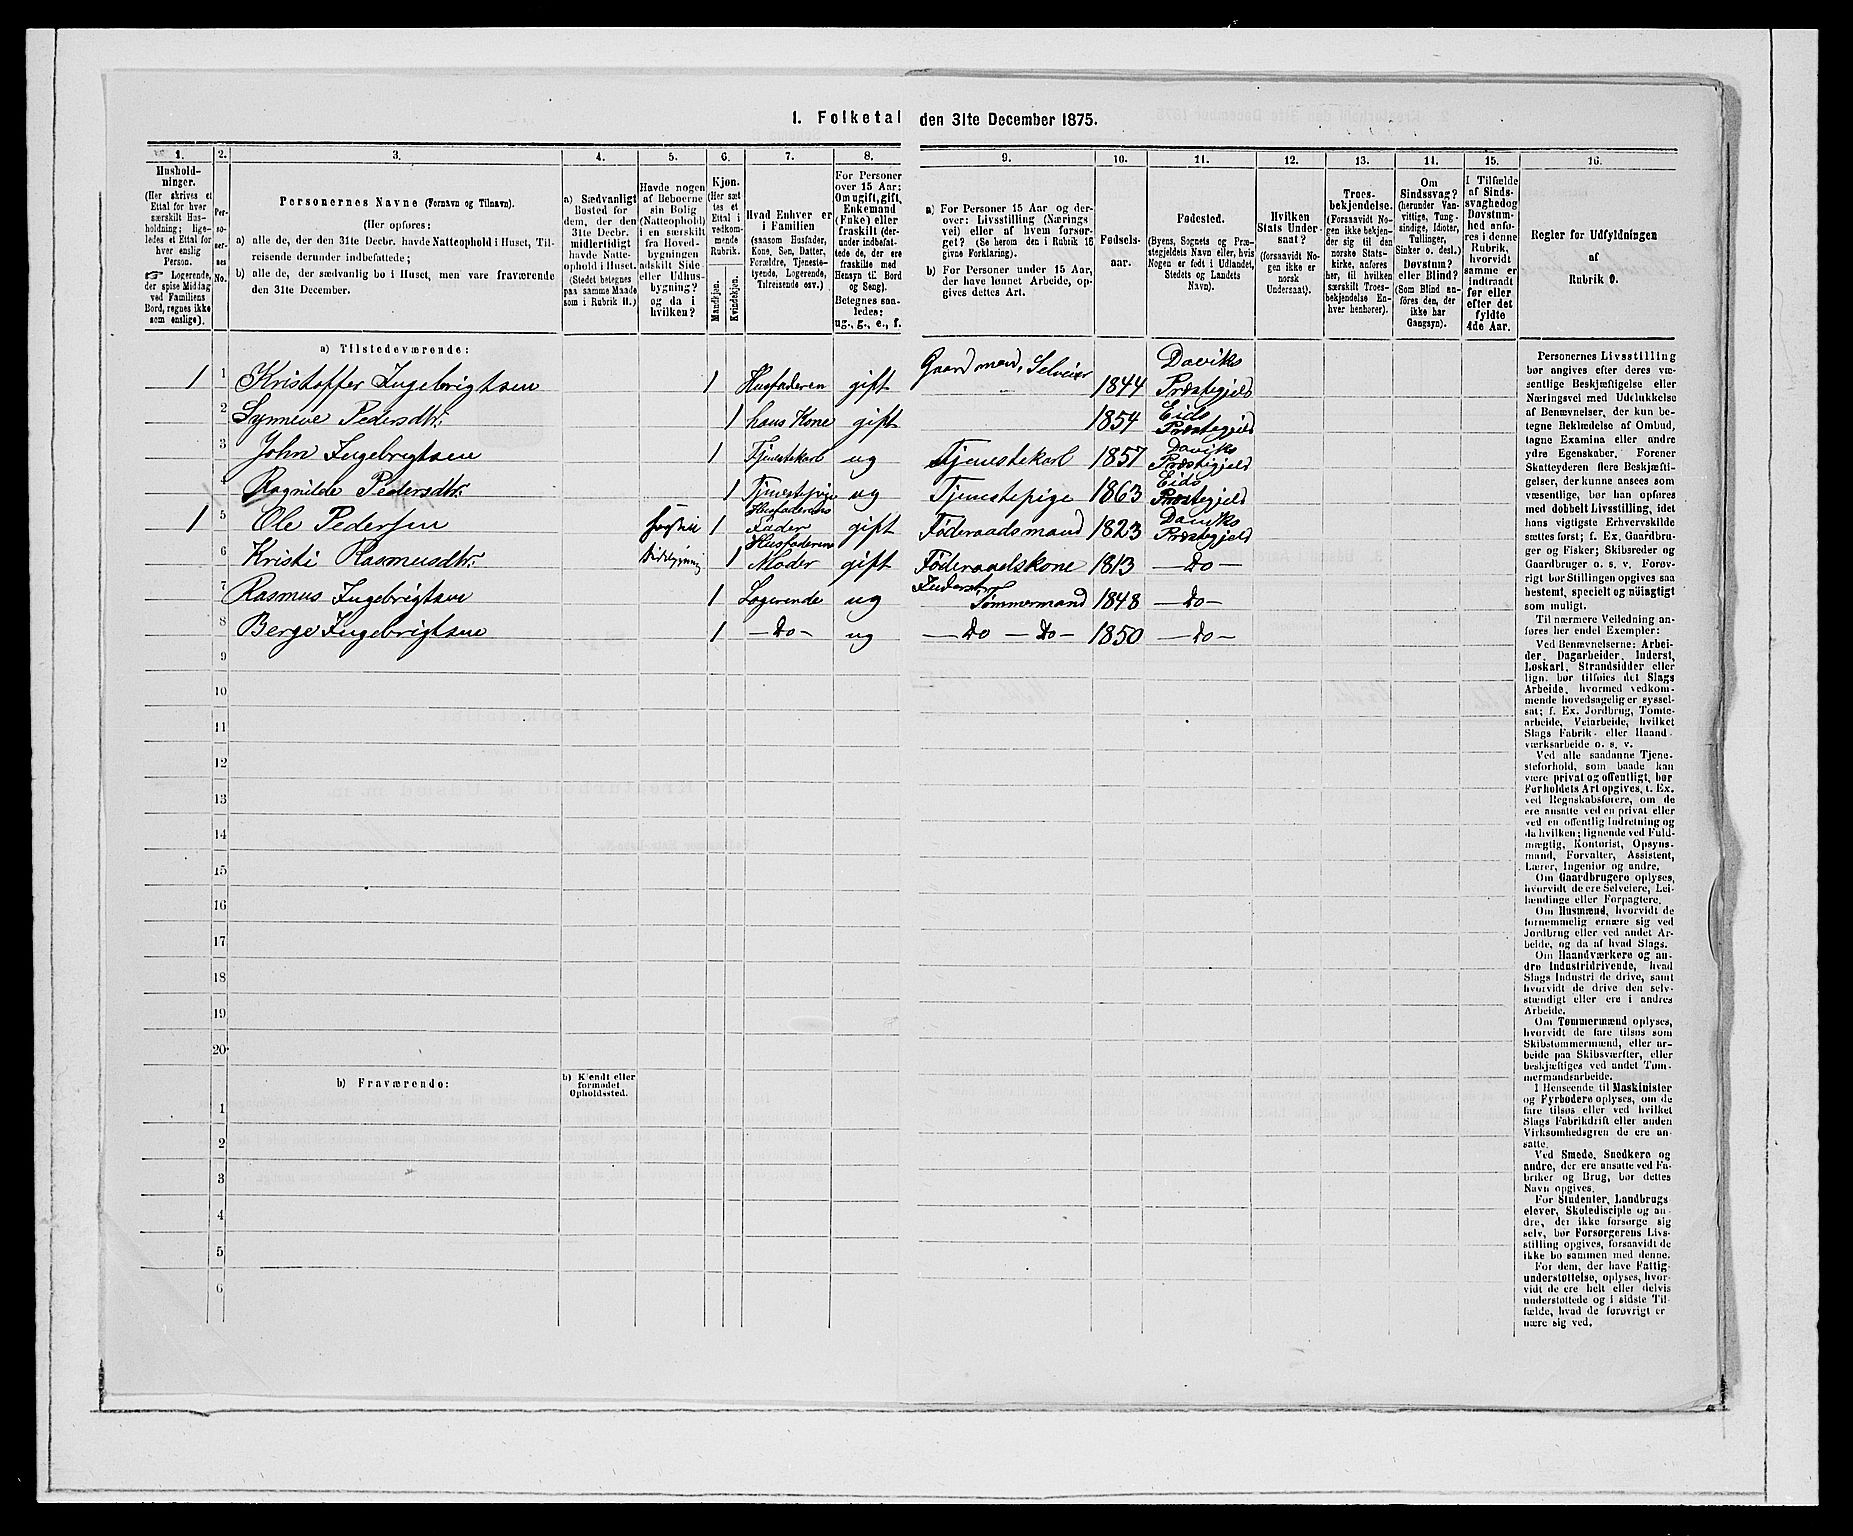 1. Folketal den 31te December 1875.
1. 2. 3. 4. 5. 6. 7. 8. 9. 10. 11. 12. 13. 14. 15. 16.
Hushold-
ninger.
(Her skrives et
Ettal for hver
særskilt Hus-
holdning; lige-
ledes et Ettal for
hver enslig
Person.
☞ Logerende,
der spise Middag
ved Familiens
Bord, regnes ikke
som enslige).
Per-
so-
ner-
nes
No.
Personernes Navne (Fornavn og Tilnavn).
(Her opføres:
a) alle de, der den 31te Decbr. havde Natteophold i Huset, Til-
reisende derunder indbefattede;
b) alle de, der sædvanlig bo i Huset, men vare fraværende
den 31te December.
a) Sædvanligt
Bosted for
dem, der den
31te Decbr.
midlertidigt
havde Natte-
ophold i Huset.
(Stedet betegnes
paa samme Maade
som i Rubrik 11.)
Havde nogen
af Beboerne
sin Bolig
(Natteophold)
i en særskilt
fra Hoved-
bygningen
adskilt Side
eller Udhus-
bygning?
og da i
hvilken?
Kjøn.
(Her sæt
tes et
Ettal i
vedkom-
mende
Rubrik.
Mandkjøn.
Kvindekjøn.
Hvad Enhver er
i Familien
(saasom Husfader,
Kone, Søn, Datter,
Forældre, Tjeneste-
tyende, Logerende,
Tilreisende osv.)
For Personer
over 15 Aar:
Om ugift, gift,
Enkemand
(Enke) eller
fraskilt (der-
under indbefat-
tede de, der ere
fraskilte med
Hensyn til Bord
og Seng).
Betegnes saa-
ledes:
ug., g., e., f.
a) For Personer 15 Aar og der-
over: Livsstilling (Nærings
vei) eller af hvem forsør-
get? (Se herom den i Rubrik 16
givne Forklaring).
b) For Personer under 15 Aar,
der have lønnet Arbeide, op-
gives dettes Art.
Fødsels-
aar.
Fødested.
(Byens, Sognets og Præ-
stegjeldets Navn eller, hvis
Nogen er født i Udlandet,
Stedets og Landets
Navn).
Hvilken
Stats Under-
saat?
(forsaavidt No-
gen ikke er
norsk
Undersaat).
Troes-
bekjendelse.
(Forsaavidt No-
gen ikke bekjen-
der sig til den
norske Stats-
kirke, anføres
her, til hvilken
særskilt Troes-
bekjendelse En-
hver henhører).
Om
Sindssvag?
(herunder Van-
vittige, Tung-
sindige, Idioter,
Tullinger,
Sinker o. desl.)
Døvstum?
eller Blind?
(Som Blind an-
føres den, der
ikke har
Gangsyn).
I Tilfælde
af Sinds-
svaghed og
Døvstum-
hed anfø-
res i denne
Rubrik,
hvorvidt
samme er
indtraadt
før eller
efter det
fyldte
4de Aar.
Regler for Udfyldningen
af
Rubrik 9.
a) Tilstedeværende:
1 1 Kristoffer Ingebrigtsen 1 Husfaderen gift Gaardmand, Selveier 1844 Daviks Præstegjeld
2 Synneve Pedersdtr. 1 hans Kone gift 1854 Eids Præstegjeld
3 John Ingebrigtsen 1 Tjenestekarl ug Tjenestekarl 1857 Daviks Præstegjeld
4 Ragnilde Pedersdtr. 1 Tjenestepige ug Tjenestepige 1863 Eids Præstegjeld
1 5 Ole Pedersen 1 Husfaderens Fader gift Føderaadsmand 1823 Daviks Præstegjeld
6 Kristi Rasmusdtr. 1 Husfaderens Moder gift Føderaadskone 1813 — Do —
7 Rasmus Ingebrigtsen 1 Logerende ug Inderst, Tømmermand 1848 — Do —
8 Berge Ingebrigtsen 1 — Do — ug — Do — Do — 1850 — Do —
9
10
11
12
13
14
15
16
17
18
19
20
b) Fraværende:
b) Kjendt eller
formodet
Opholdssted.
1
2
3
4
5
6
Personernes Livsstilling
bør angives efter deres væ-
sentlige Beskjæftigelse eller
Næringsvei med Udelukkelse
af Benævnelser, der kun be-
tegne Beklædelse af Ombud,
tagne Examina eller andre
ydre Egenskaber. Forener
Skatteyderen flere Beskjæfti-
gelser, der kunne ansees som
væsentlige, bør han opføres
med dobbelt Livsstilling, idet
hans vigtigste Erhvervskilde
sættes først; f. Ex. Gaardbru-
ger og Fisker; Skibsreder og
Gaardbruger o. s. v. Forøv-
rigt bør Stillingen opgives saa
bestemt, specielt og nøiagtigt
som muligt.
Til nærmere Veiledning an-
føres her endel Exempler:
Ved Benævnelserne: Arbei-
der, Dagarbeider, Inderst,
Løskarl, Strandsidder eller
lign. bør tilføies det Slags
Arbeide, hvormed vedkom-
mende hovedsagelig er syssel-
sat; f. Ex. Jordbrug, Tomte-
arbeide, Veiarbeide, hvilket
Slags Fabrik- eller Haand-
værksarbeide o. s. v.
Ved alle saadanne Tjene-
steforhold, som baade kan
være privat og offentligt, bør
Forholdets Art opgives, t. Ex.
ved Regnskabsførere, om de
ere ansatte ved en privat eller
ved en offentlig Indretning og
da hvilken; lignende ved Fuld-
mægtig, Kontorist, Opsyns-
mand, Forvalter, Assistent,
Lærer, Ingeniør og andre.
Om Gaardbrugere oplyses,
hvorvidt de ere Selveiere, Lei-
lændinge eller Forpagtere.
Om Husmænd, hvorvidt de
fornemmelig ernære sig ved
Jordbrug eller ved andet Ar-
beide, og da af hvad Slags.
Om Haandværkere og an-
dre Industridrivende, hvad
Slags Industri de drive, samt
hvorvidt de drive den selv-
stændigt eller ere i andres
Arbeide.
Om Tømmermænd oplyses,
hvorvidt de fare tilsøs som
Skibstømmermænd, eller ar-
beide paa Skibsværfter, eller
beskjæftiges ved andet Tøm-
mermandsarbeide.
I Henseende til Maskinister
og Fyrbødere oplyses, om de
fare tilsøs eller ved hvilket
Slags Fabrikdrift eller anden
Virksomhedsgren de ere an-
satte.
Ved Smede, Snedkere og
andre, der ere ansatte ved Fa-
briker og Brug, bør dettes
Navn opgives.
For Studenter, Landbrugs-
elever, Skoledisciple og an-
dre, der ikke forsørge sig
selv, bør Forsørgerens Livs-
stilling opgives, forsaavidt de
ikke bo sammen med denne.
For dem, der have Fattig-
understøttelse, oplyses, hvor-
vidt de ere helt eller delvis
understøttede og i sidste Til-
fælde, hvad de forøvrigt er
nære sig ved.